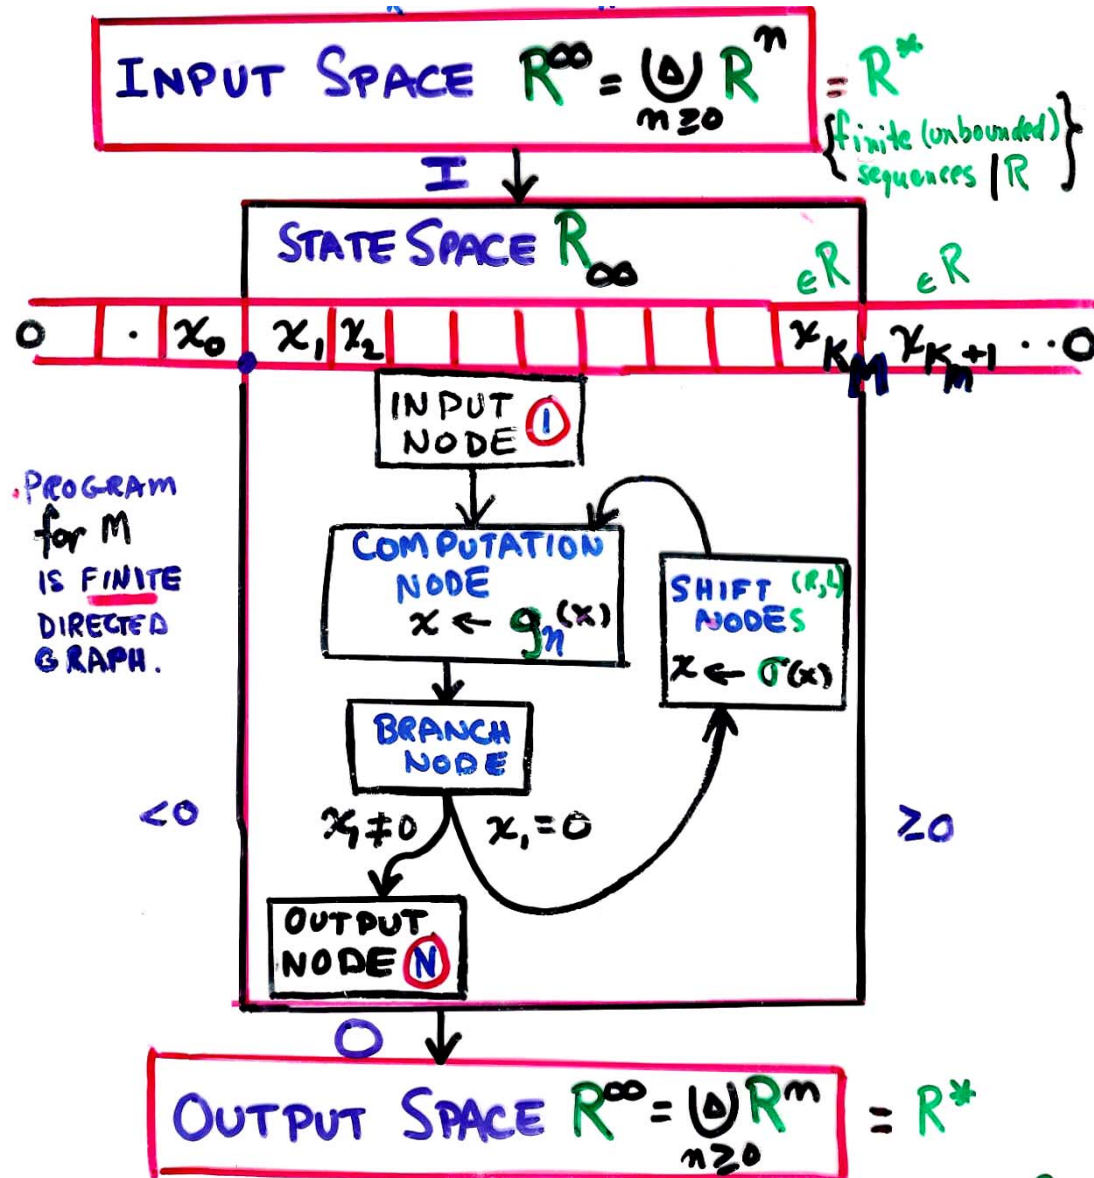 INPUT SPACE R^∞ = ⨃ R^n = R*
n≥0
{finite (unbounded)
sequences | R}
I
STATE SPACE R_∞
∈R ∈R
0 · x_0 x_1 x_2 x_{K_M} x_{K_m+1} ··0
INPUT
NODE 1
.PROGRAM
for M
IS FINITE
DIRECTED
GRAPH.
COMPUTATION
NODE
x ← g_n(x)
SHIFT (R,L)
NODES
x ← σ(x)
BRANCH
NODE
<0
≥0
x_1 ≠ 0 x_1 = 0
OUTPUT
NODE N
O
OUTPUT SPACE R^∞ = ⨃ R^n = R*
n≥0